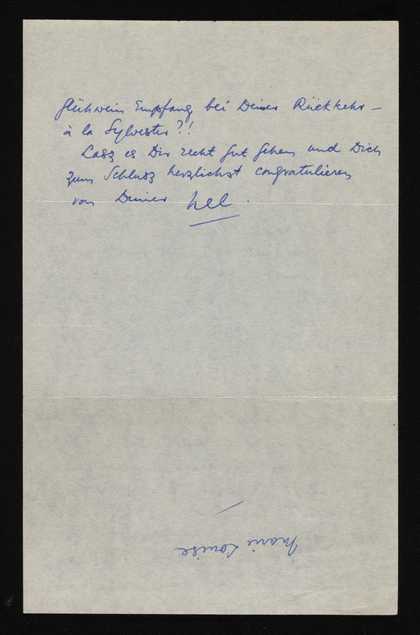 Glühwein Empfang bei Deiner Rückkehr –
à la Sylvester?!
Lass es Dir recht gut gehen und Dich
zum Schluss herzlichst congratulieren
von Deiner Nel.
Marie Louise